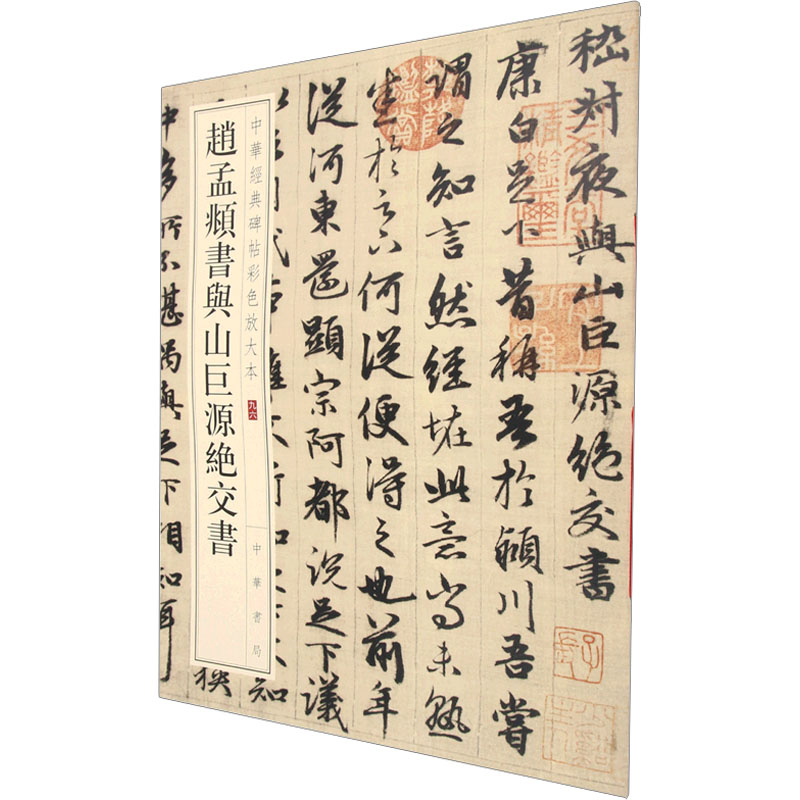 嵇叔夜與山巨源絕交書
康白足下昔稱吾於潁川吾嘗
謂之知言然經恠此意尚未熟
悉於足下何從便得之也前年
從河東還顯宗阿都說足下議
知
狹
中多所不堪偶與足下相知耳
中華經典碑帖彩色放大本
九六
中華書局
趙孟頫書與山巨源絕交書